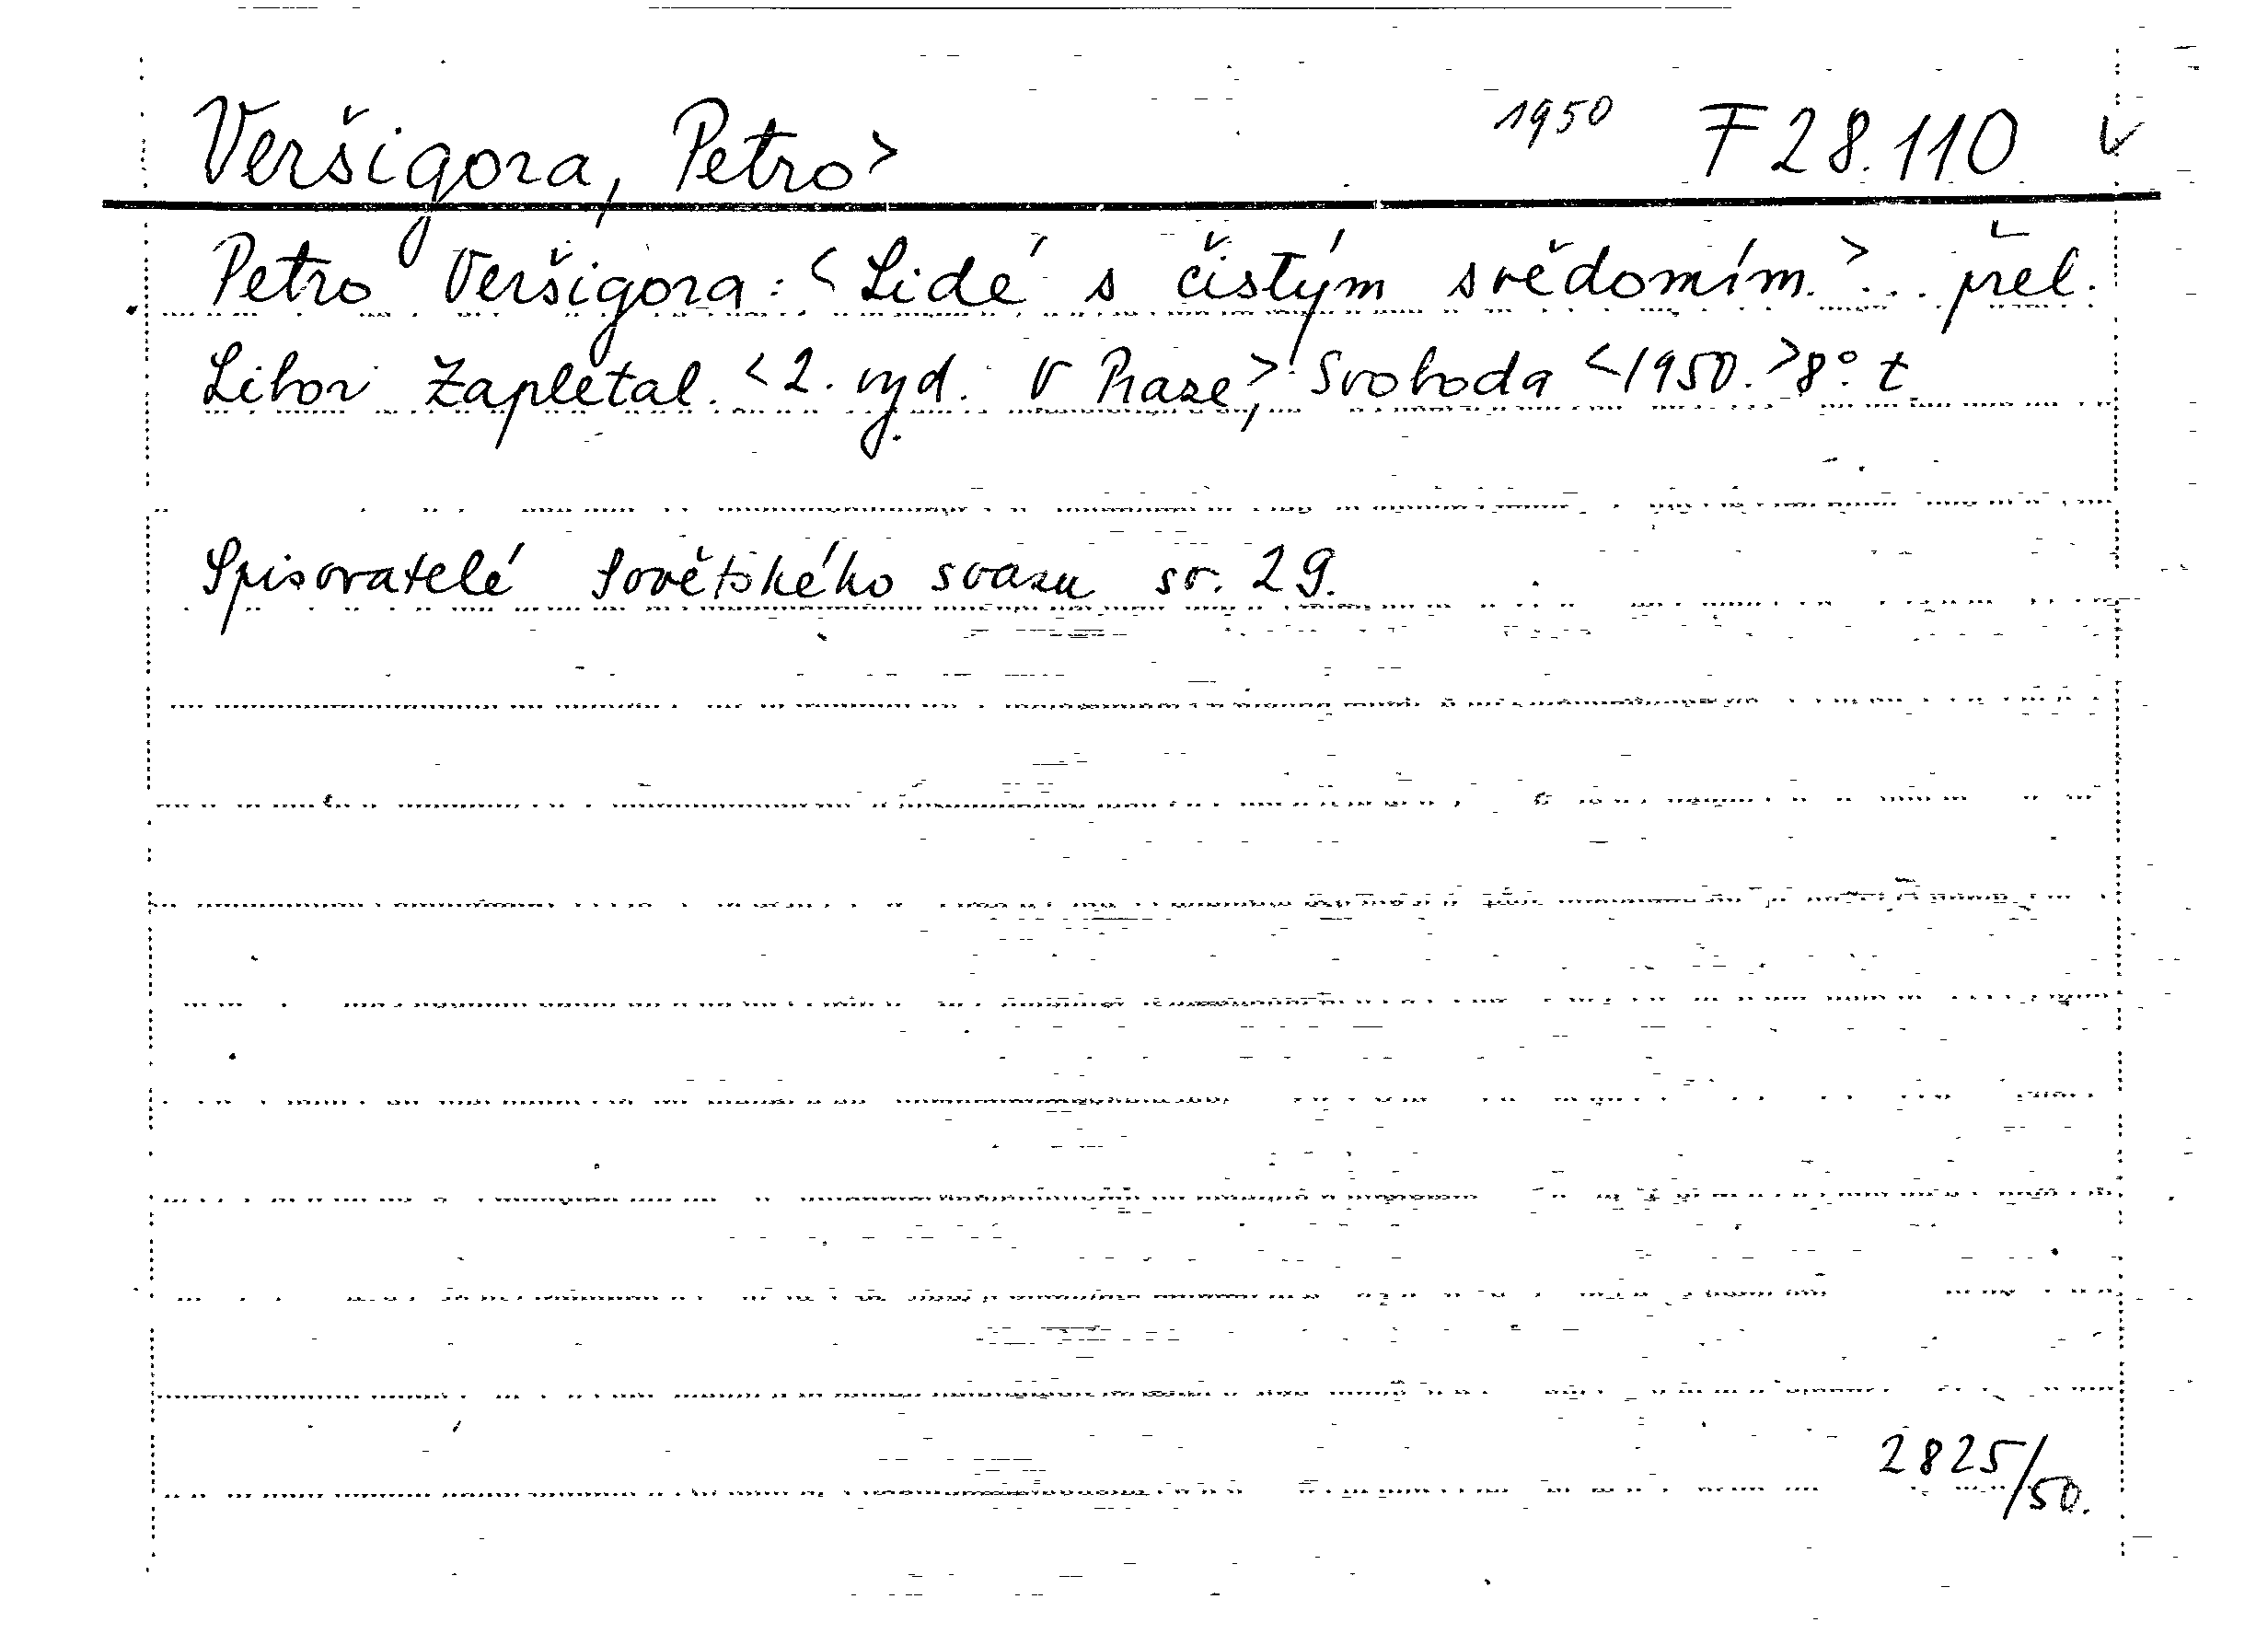 Veršigora, Petro> 1950 F 28.110 v
Petro Veršigora: <Lidé s čistým svědomím.>... přel.
Libor Zapletal. <2. vyd. V Praze,> Svoboda <1950.> 8°. t
Spisovatelé Sovětského svazu sv. 29.
2825/50.